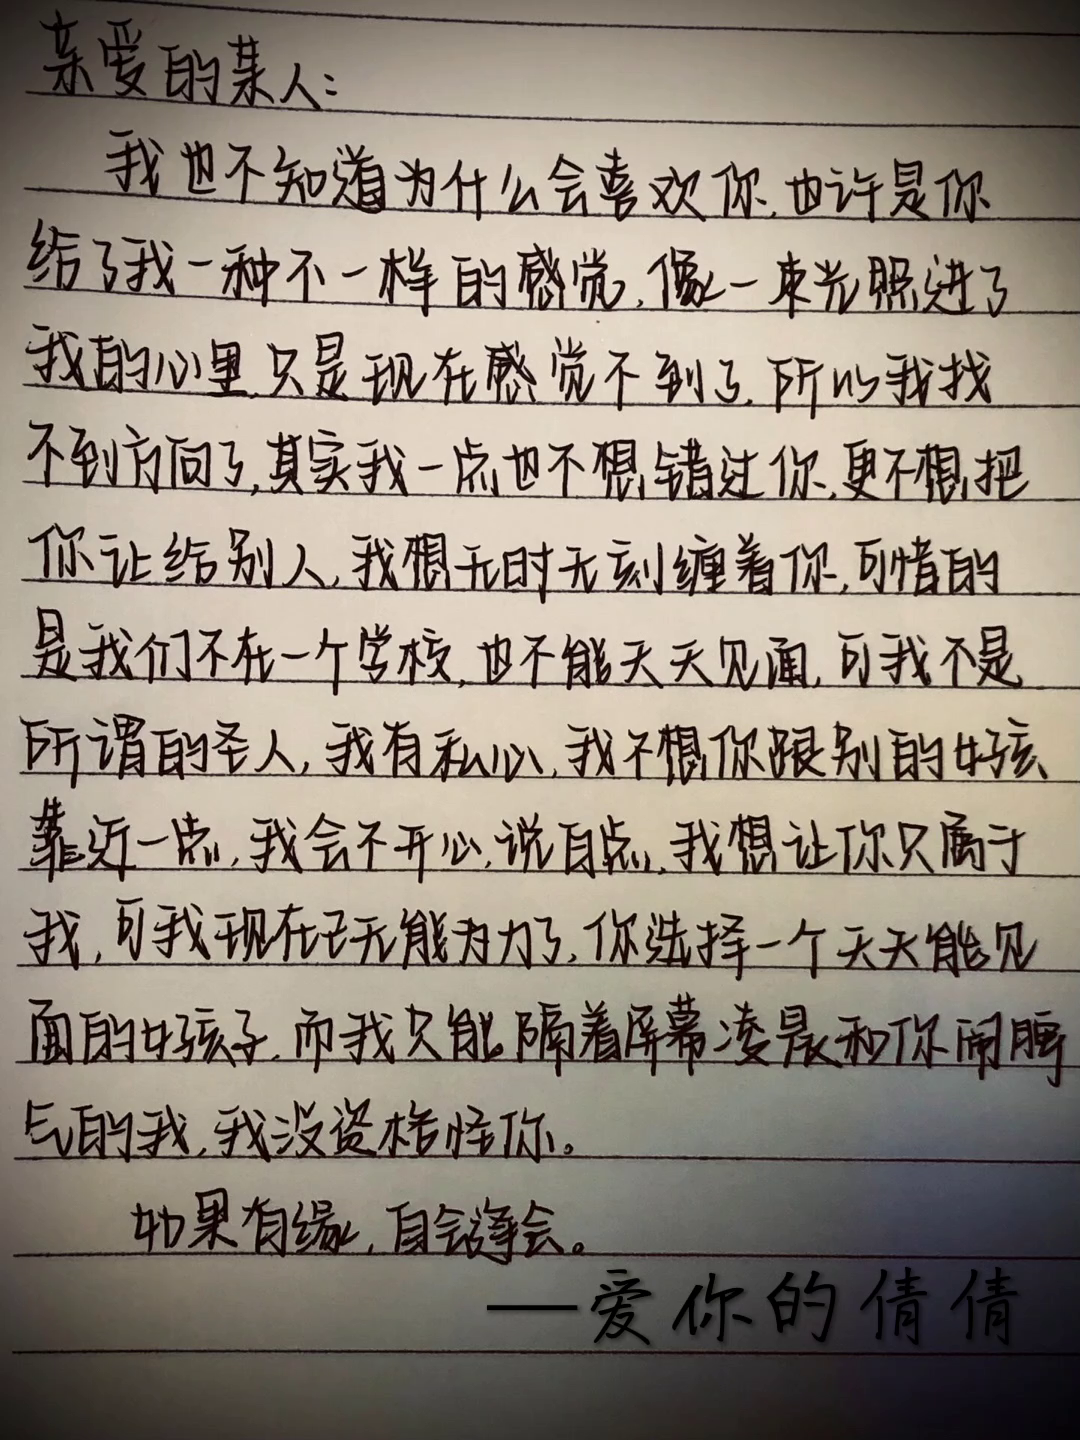 亲爱的某人:
我也不知道为什么会喜欢你,也许是你
给了我一种不一样的感觉,像一束光照进了
我的心里,只是现在感觉不到了,所以我找
不到方向了,其实我一点也不想错过你,更不想把
你让给别人,我想无时无刻缠着你,可惜的
是我们不在一个学校,也不能天天见面,可我不是
所谓的圣人,我有私心,我不想你跟别的女孩
靠近一点,我会不开心,说白点,我想让你只属于
我,可我现在已无能为力了,你选择一个天天能见
面的女孩子,而我只能隔着屏幕凌晨和你闹脾
气的我,我没资格怪你。
如果有缘,自会逢会。
—爱你的倩倩